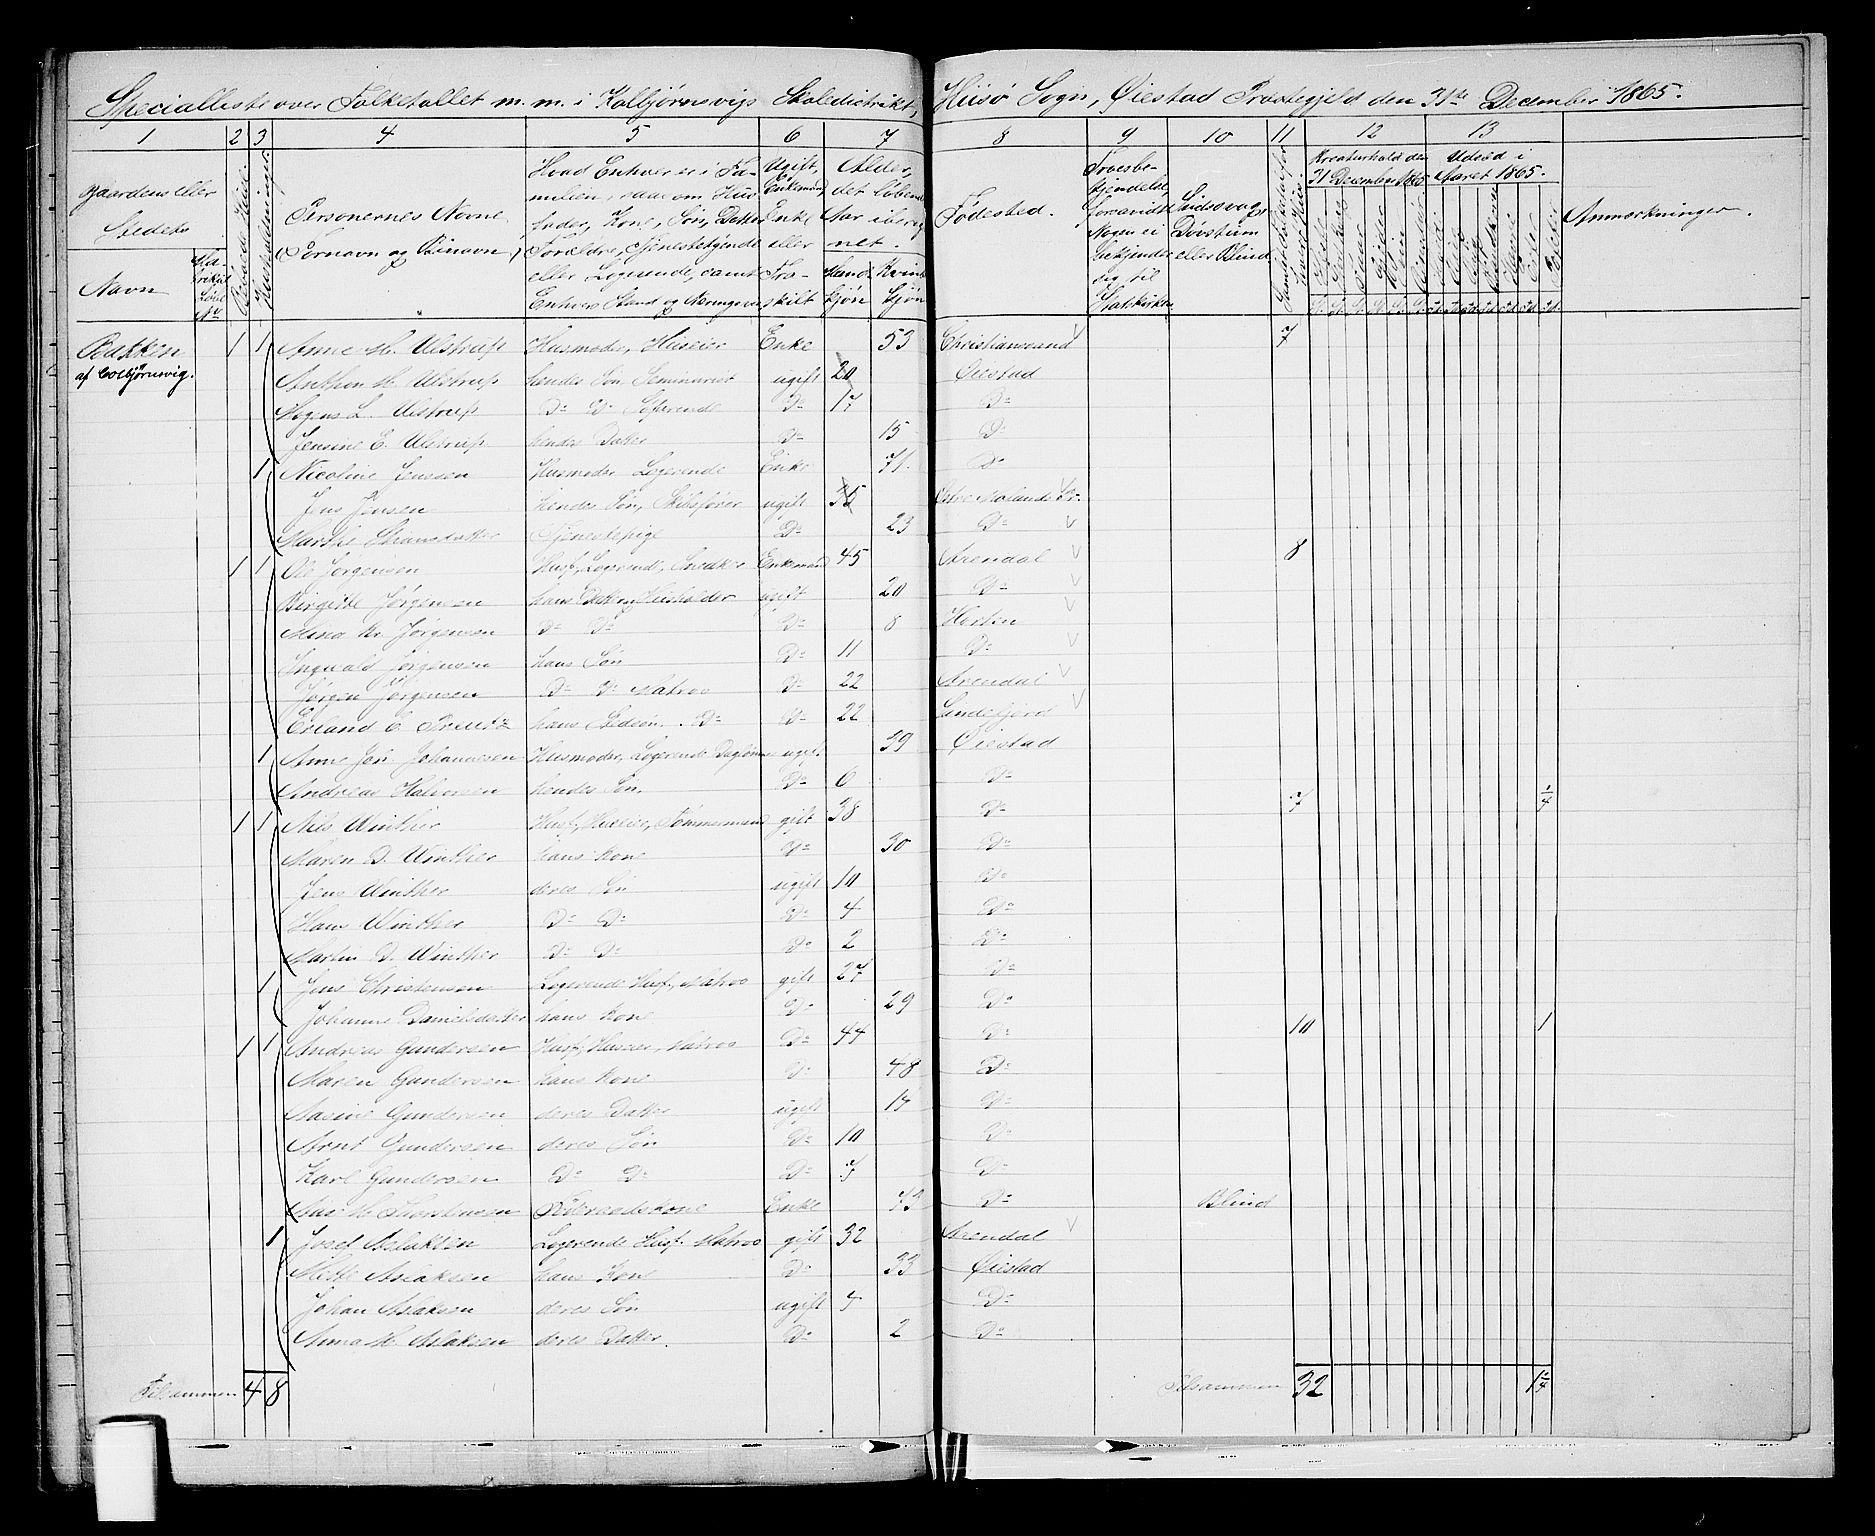 Specialliste over Folketallet m. m. i Kolbjørnsvigs Skoledistrikt, Hiisö Sogn, Øiestad Præstegjeld den 31te December 1865.
1 2 3 4 5 6 7 8 9 10 11 12 13
Gaardens eller Stedets
Navn
Matrikul Løbe No
Beboede Huse
Huusholdninger
Personernes Navne
(Fornavn og Tilnavn)
Hvad Enhver er i Familien, saasom Husfader, Kone, Søn, Datter, Forældre, Tjenestetyende eller Logerende, samt Enhvers Stand og Næringsvei
Ugift, Gift, Enkemand, Enke eller Fraskilt
Alder, det løbende Aar iberegnet.
Mandkjøn
Kvindekjøn
Fødested.
Troesbekjendelse, forsaavidt Nogen ei bekjender sig til Statskirken
Sindssvag, Døvstum eller Blind
Kreaturhold den 31 December 1865
Udsæd i Aaret 1865.
Anmærkninger.
Bakken 1 1 Anne M. Ulstrup Husmoder, Huseier Enke 53 Christianssand 7
af Colbjørnsvig. Anthon M. Ulstrup hendes Søn, Seminarist ugift 20 Øiestad
Mogens L. Ulstrup Do Do Søfarende Do 17 Do
Jensine E. Ulstrup hendes Datter Do 15 Do
1 Nicoline Jenssen Husmoder Logerende Enke 71 Do
Jens Jensen hendes Søn, Skibsfører ugift 35
Marthe Tjenestepige Do 23 Do
1 1 Ole Jørgensen Husf., Logerende, Snedker Enkemand 45 Arendal 8
Birgitte Jørgensen hans Datter, Husholder ugift 20 Do
Mina Kr. Jørgensen Do Do Do 8 Horten
Ingvald Jørgensen hans Søn Do 11 Do
Jørgen Jørgensen Do Do Matros Do 22 Arendal
Erland C. hans Stedsøn Do Do 22 Sandefjord
1 Anne Jør. Johannesen Husmoder, Logerende ugift 39 Øiestad
Andreas Halvorsen hendes Søn, Do 6 Do
1 1 Nils Winther Husf., Huseier, Tømmermand gift 38 Do 7 1/4
Maren D. Winther hans Kone Do 30 Do
Jens Winther deres Søn ugift 10 Do
Hans Winther Do Do Do 4 Do
Martin D. Winther Do Do Do 2 Do
1 Jens Christensen Logerende Husf., Matros gift 27 Do
Johanne Danielsdatter hans Kone Do 29 Do
1 1 Andreas Gundersen Husf., Huseier, Matros Do 44 Do 10 1
Maren Gundersen hans Kone Do 48 Do
Gundersen deres Datter ugift 14 Do
Arnt Gundersen deres Søn Do 10 Do
Karl Gundersen Do Do Do 7 Do
Føderaadskone Enke 73 Do Blind
1 Josef Aslaksen Logerende Husf. Matros gift 32 Arendal
Mette Aslaksen hans Kone Do 33 Øiestad
Johan Aslaksen deres Søn ugift 4 Do
Anna M. Aslaksen deres Datter. Do 2 Do
Tilsammen 4 8 Tilsammen 32 1 1/4